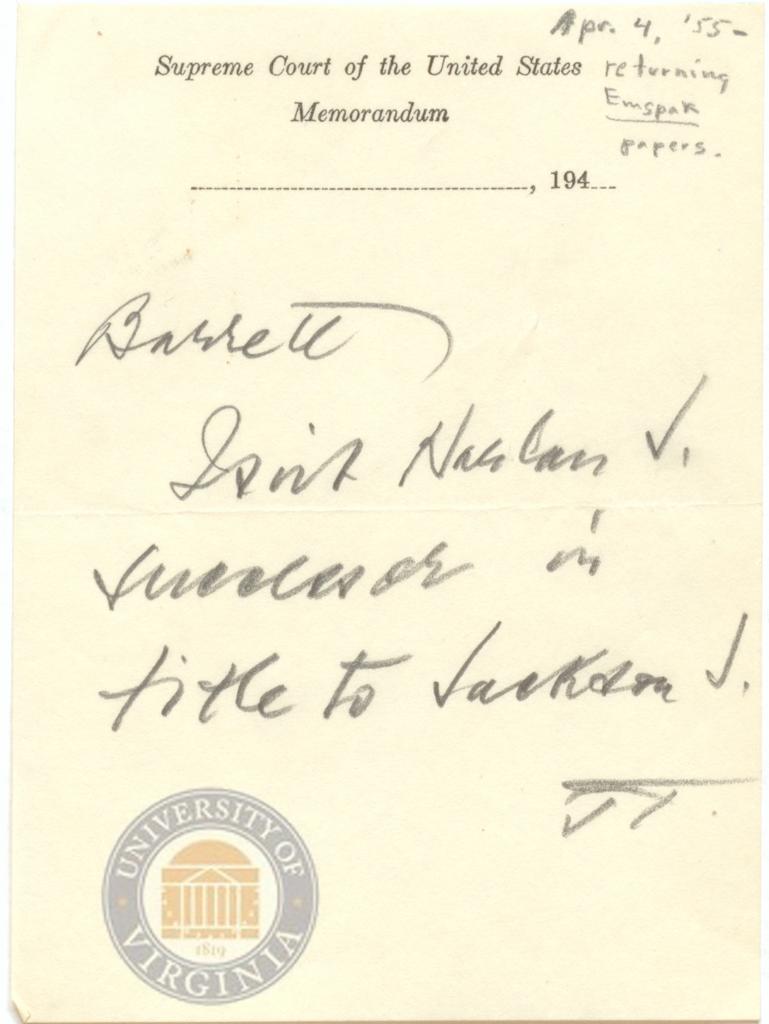 Apr. 4, '55 -
returning
Emspak
papers.
Supreme Court of the United States
Memorandum
, 194
Barrett
Isn't Harlan J.
successor in
title to Jackson J.
UNIVERSITY OF VIRGINIA
1819